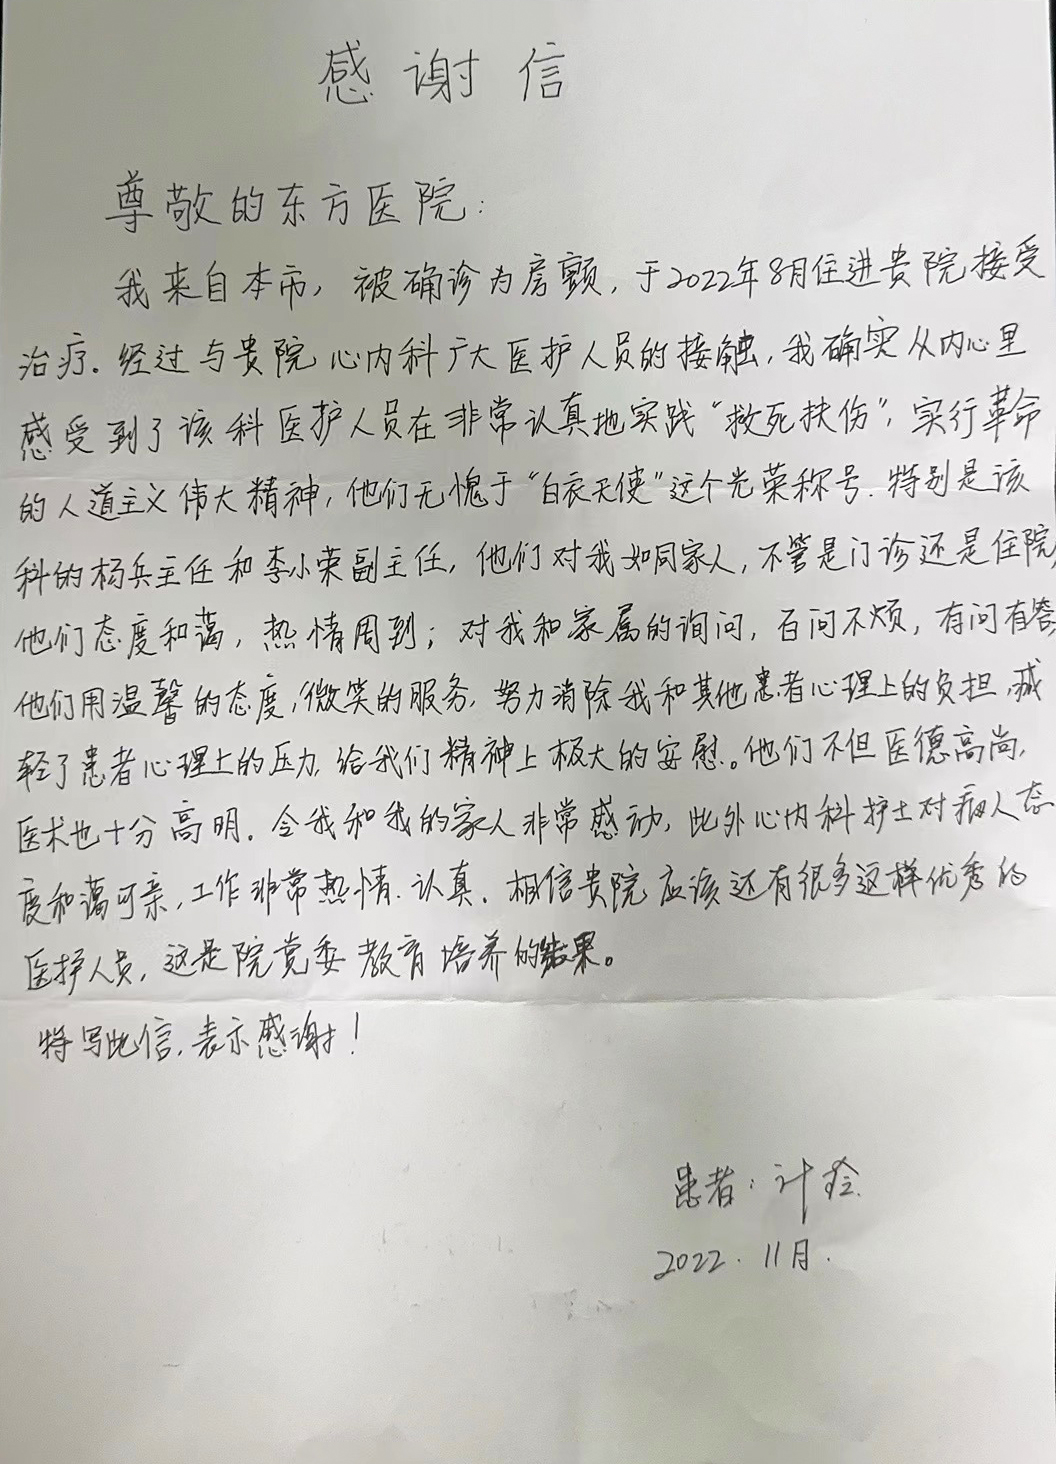 感谢信
尊敬的东方医院：
我来自本市，被确诊为房颤，于2022年8月住进贵院接受
治疗.经过与贵院心内科广大医护人员的接触，我确实从内心里
感受到了该科医护人员在非常认真地实践“救死扶伤”，实行革命
的人道主义伟大精神，他们无愧于“白衣天使”这个光荣称号.特别是该
科的杨兵主任和李小荣副主任，他们对我如同家人，不管是门诊还是住院，
他们态度和蔼，热情周到；对我和家属的询问，百问不烦，有问有答
他们用温馨的态度，微笑的服务，努力消除我和其他患者心理上的负担，减
轻了患者心理上的压力，给我们精神上极大的安慰。他们不但医德高尚，
医术也十分高明.令我和我的家人非常感动，此外心内科护士对病人态
度和蔼可亲，工作非常热情.认真.相信贵院应该还有很多这样优秀的
医护人员，这是院党委教育培养的结果。
特写此信，表示感谢！
患者：计
2022.11月.